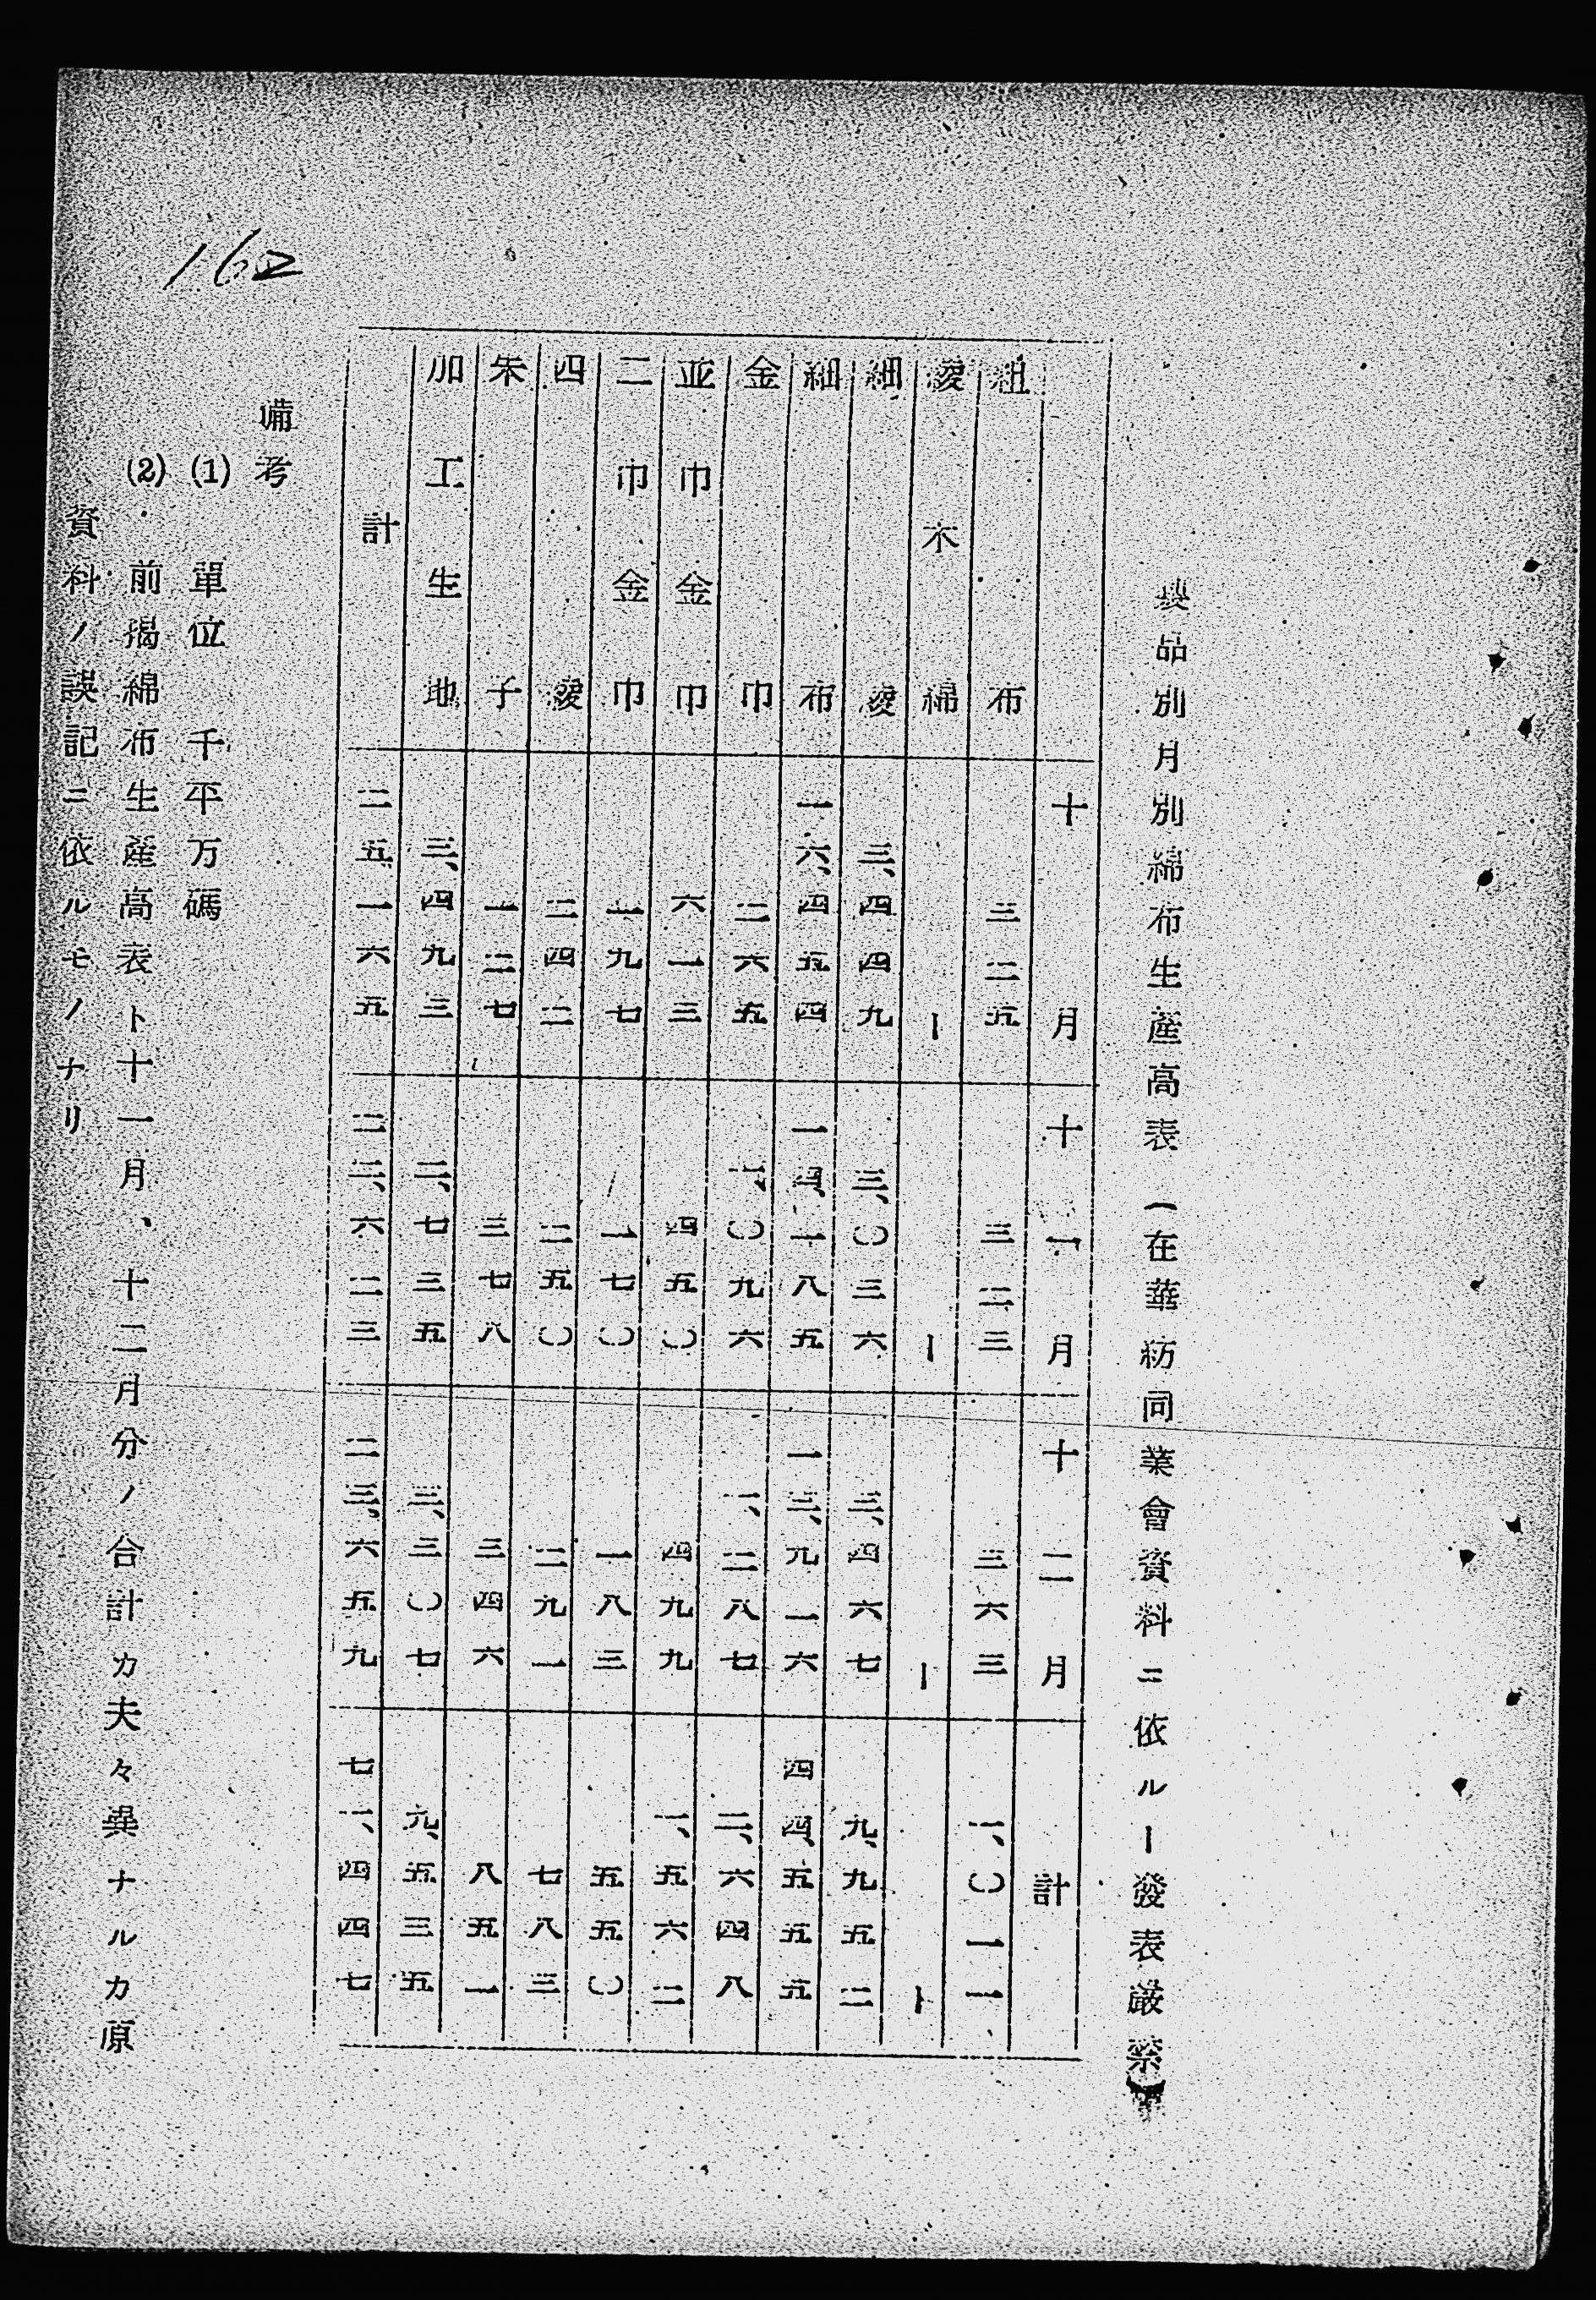 製品別月別綿布生産高表(在華紡同業會資料ニ依ルー發表厳禁)
十月 十一月 十二月 計
粗布 三二五 三二三 三六三 一、〇一一
綾木綿 ー ー ー ー
細綾 三、四四九 三、〇三六 三、四六七 九、九五二
細布 一六、四五四 一四、一八五 一三、九一六 四四、五五五
金巾 二六五 一、〇九六 一、二八七 二、六四八
並巾金巾 六一三 四五〇 四九九 一、五六二
二巾金巾 一九七 一七〇 一八三 五五〇
四綾 二四二 二五〇 二九一 七八三
朱子 一二七 三七八 三四六 八五一
加工生地 三、四九三 二、七三五 三、三〇七 九、五三五
計 二五、一六五 二二、六二三 二三、六五九 七一、四四七
備考
(1) 單位 千平万碼
(2) 前掲綿布生産高表ト十一月、十二月分ノ合計カ夫々異ナルカ原
資料ノ誤記ニ依ルモノナリ
162